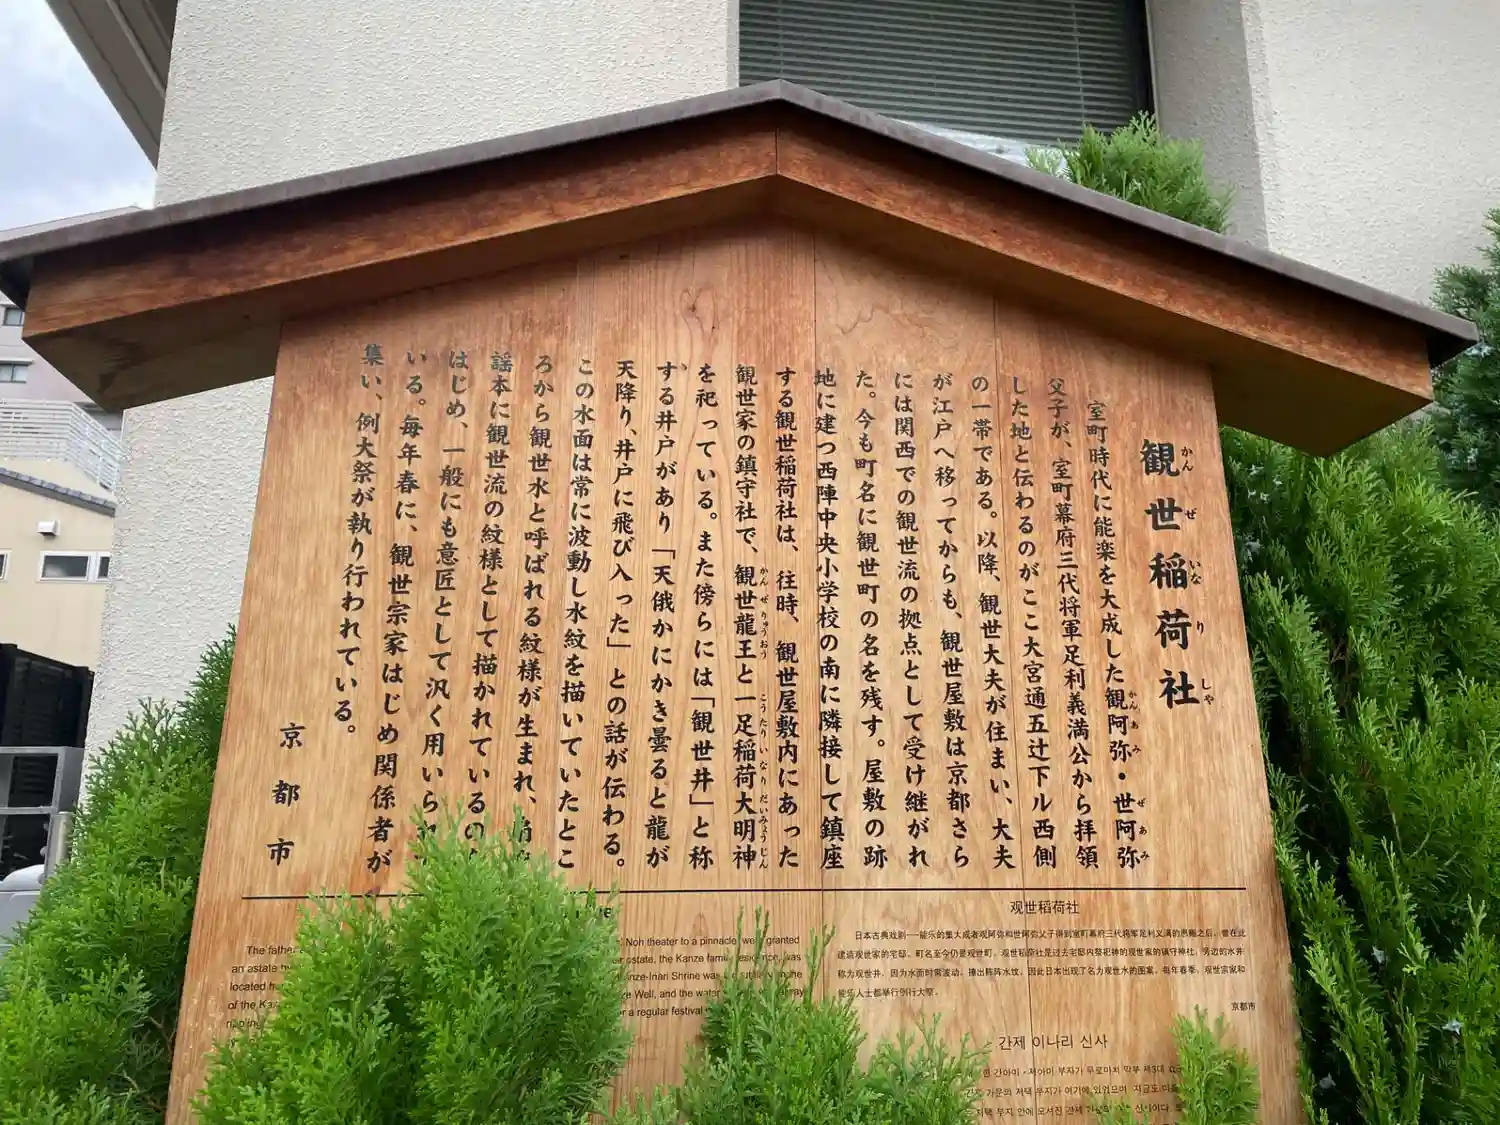 観世稲荷社
かんぜいなりしゃ
室町時代に能楽を大成した観阿弥・世阿弥
かんあみ
ぜあみ
父子が、室町幕府三代将軍足利義満公から拝領
した地と伝わるのがここ大宮通五辻下ル西側
の一帯である。以降、観世大夫が住まい、大夫
が江戸へ移ってからも、観世屋敷は京都さら
には関西での観世流の拠点として受け継がれ
た。今も町名に観世町の名を残す。屋敷の跡
地に建つ西陣中央小学校の南に隣接して鎮座
する観世稲荷社は、往時、観世屋敷内にあった
観世家の鎮守社で、観世龍王と一足稲荷大明神
かんぜりゅうおう
こうたりいなりだいみょうじん
を祀っている。また傍らには「観世井」と称
する井戸があり「天俄かにかき曇ると龍が
天降り、井戸に飛び入った」との話が伝わる。
この水面は常に波動し水紋を描いていたとこ
ろから観世水と呼ばれる紋様が生まれ、
謡本に観世流の紋様として描かれているの
はじめ、一般にも意匠として汎く用いられ
いる。毎年春に、観世宗家はじめ関係者が
集い、例大祭が執り行われている。
京都市
The father
an astate
located
of the
Noh theater to a pinnacle, were granted
estate, the Kanze family residence, was
Shrine was
Well, and the water
or a regular festival
观世稻荷社
日本古典戏剧──能乐的集大成者观阿弥和世阿弥父子得到室町幕府三代将军足利义满的恩赐之后，曾在此
建造观世家的宅邸，町名至今仍是观世町。观世稻荷社是过去宅邸内祭祀神的观世家的镇守神社，旁边的水井
称为观世井，因为水面时常波动，撩出阵阵水纹，因此日本出现了名为观世水的图案，每年春季，观世宗家和
能乐人士都举行例行大祭。
京都市
간제 이나리 신사
간아미・제아미 부자가 무로마치 막부 제3대
가문의 저택 부지가 여기에 있었으며
저택 부지 안에 모셔진 간제